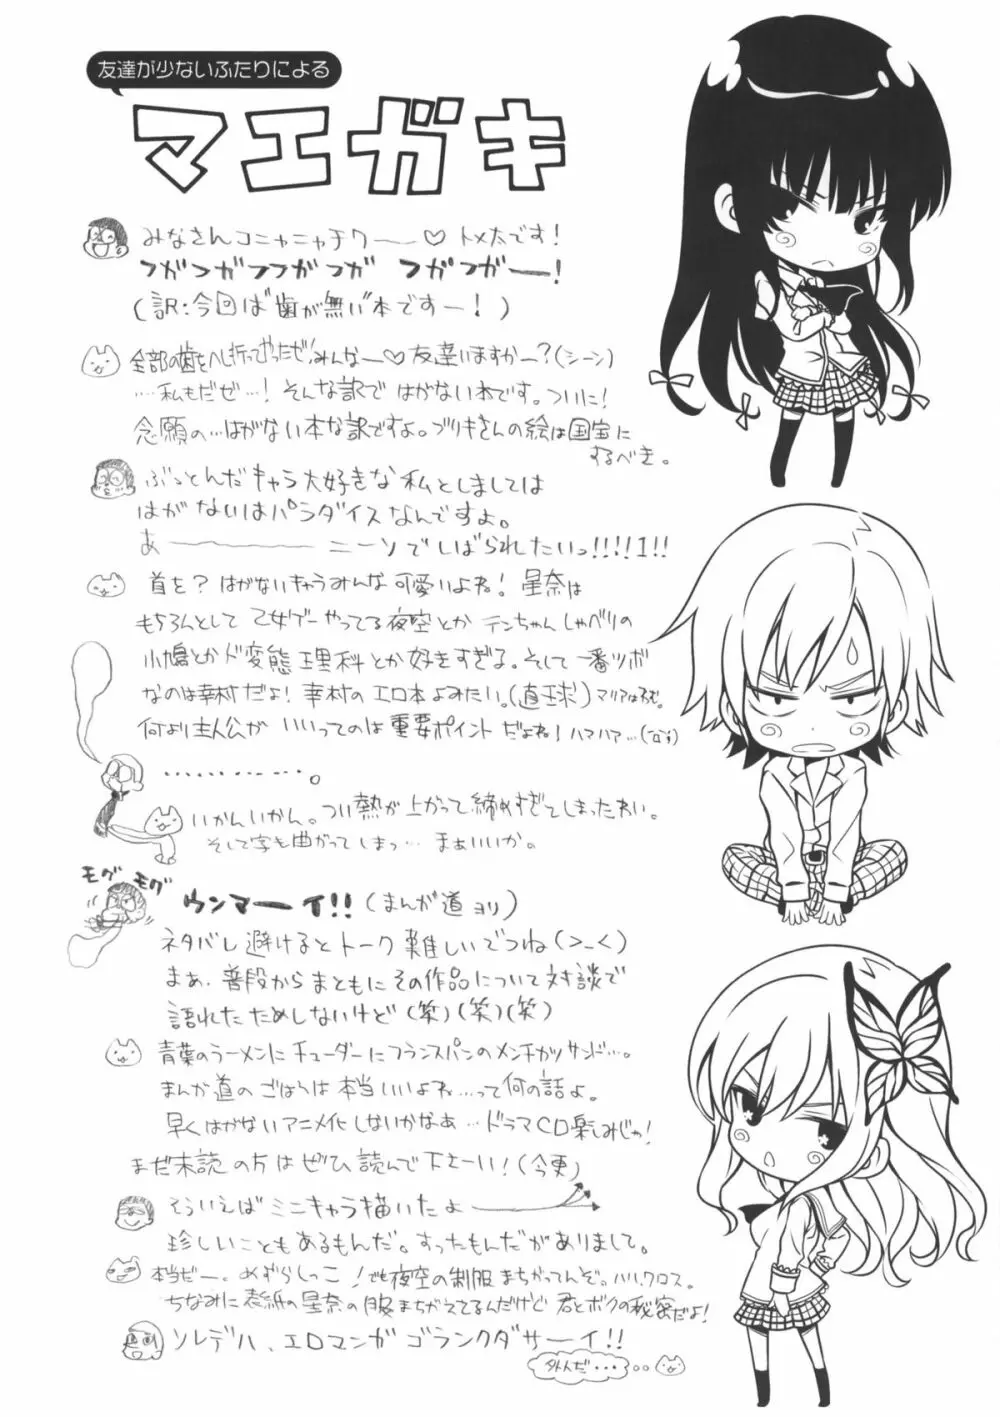 友達が少ないふたりによる
マエガキ
みなさんコニャニャチワー♡ トメ太です!
フガフガフフガフガ フガフガー!
(訳:今回は"歯が無い"本ですー!)
全部の歯をへし折ってやったぜ!みんなー♡友達いますかー?(シーン)
…私もだぜ…!そんな訳で はがない本です。ついに!
念願の…はがない本な訳ですよ。ブリキさんの絵は国宝に
するべき。
ぶっとんだキャラ大好きな私としましては
はがないはパラダイスなんですよ。
あー ニーソでしばられたいっ!!!!1!!
首を?はがないキャラみんな可愛いよね!星奈は
もちろんとして乙女ゲーやってる夜空とか テンちゃんしゃべりの
小鳩とかド変態理科とか好きすぎる。そして一番ツボ
なのは幸村だよ!幸村のエロ本よみたい。(直球)
何より主人公がいいってのは重要ポイントだよね!ハァハァ…
…………。
いかんいかん。つい熱が上がって締めすぎてしまったわい。
そして字も曲がってしまっ… まぁいいか。
モグモグ
ウンマーイ!!(まんが道ヨリ)
ネタバレ避けるとトーク難しいでつね(>_<)
まぁ、普段からまともにその作品について対談で
語れたためしないけど(笑)(笑)(笑)
青葉のラーメンにチューダーにフランスパンのメンチカツサンド…。
まんが道のごはんは本当いいよね…って何の話よ。
早くはがないアニメ化しないかなぁ…ドラマCD楽しみじゃ!
まだ未読の方はぜひ読んで下さーい!(今更)
そういえばミニキャラ描いたよ
珍しいこともあるもんだ。すったもんだがありまして。
本当ゼー。めずらしっこ!でも夜空の制服まちがってんぞ。ハハハ、ワロス。
ちなみに表紙の星奈の服まちがえてるんだけど君とボクの秘密だよ!
ソレデハ、エロマンガゴランクダサーイ!!
外人だ・・・